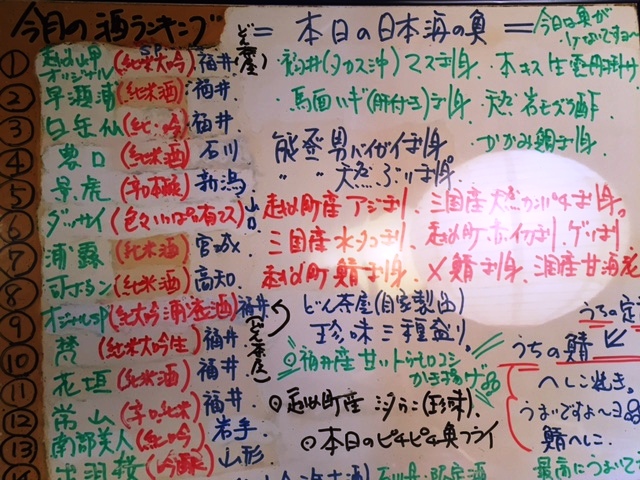 今月の酒ランキング
① 越前岬 オリジナル SP (純米大吟) 福井 (どん茶屋)
② 早瀬浦 (純米酒) 福井
③ 白岳仙 (純・吟) 福井
④ 農口 (純米酒) 石川
⑤ 景虎 新潟
⑥ ダッサイ (色々いっぱい有マス) 山口
⑦ 浦霞 (純米酒) 宮城
⑧ (純米酒) 高知
⑨ オリジナルSP (純大吟 酒) 福井 (どん茶屋)
⑩ 梵 (純米大吟生) 福井
⑪ 花垣 (純米酒) 福井
⑫ 常山 (辛口純米) 福井
⑬ 南部美人 (純吟) 岩手
⑭ 出羽桜 (吟醸) 山形
= 本日の日本海の魚 =
今日は魚が
福井(タカス沖)マス刺身、
馬面ハギ(肝付き)刺身 天然岩モズク酢
能登男バイガイ刺身 かがみ鯛刺身
〃 〃 天然ぶり刺身
越前町産アジ刺 三国産天然カンパチ刺身。
三国産水タコ刺 越前町赤イカ刺、ゲソ刺
越前町鯖刺身 〆鯖刺身
どん茶屋(自家製出)
珍味三種盛り。
◎福井産甘いトウモロコシ
かき揚げ
◎越前町産 汐うに(珍味)、
◎本日のピチピチ魚フライ
うちの定
うちの鯖
へしこ焼き。
うまいですよ〜ヨ
鯖へしこ。
最高にうまいで